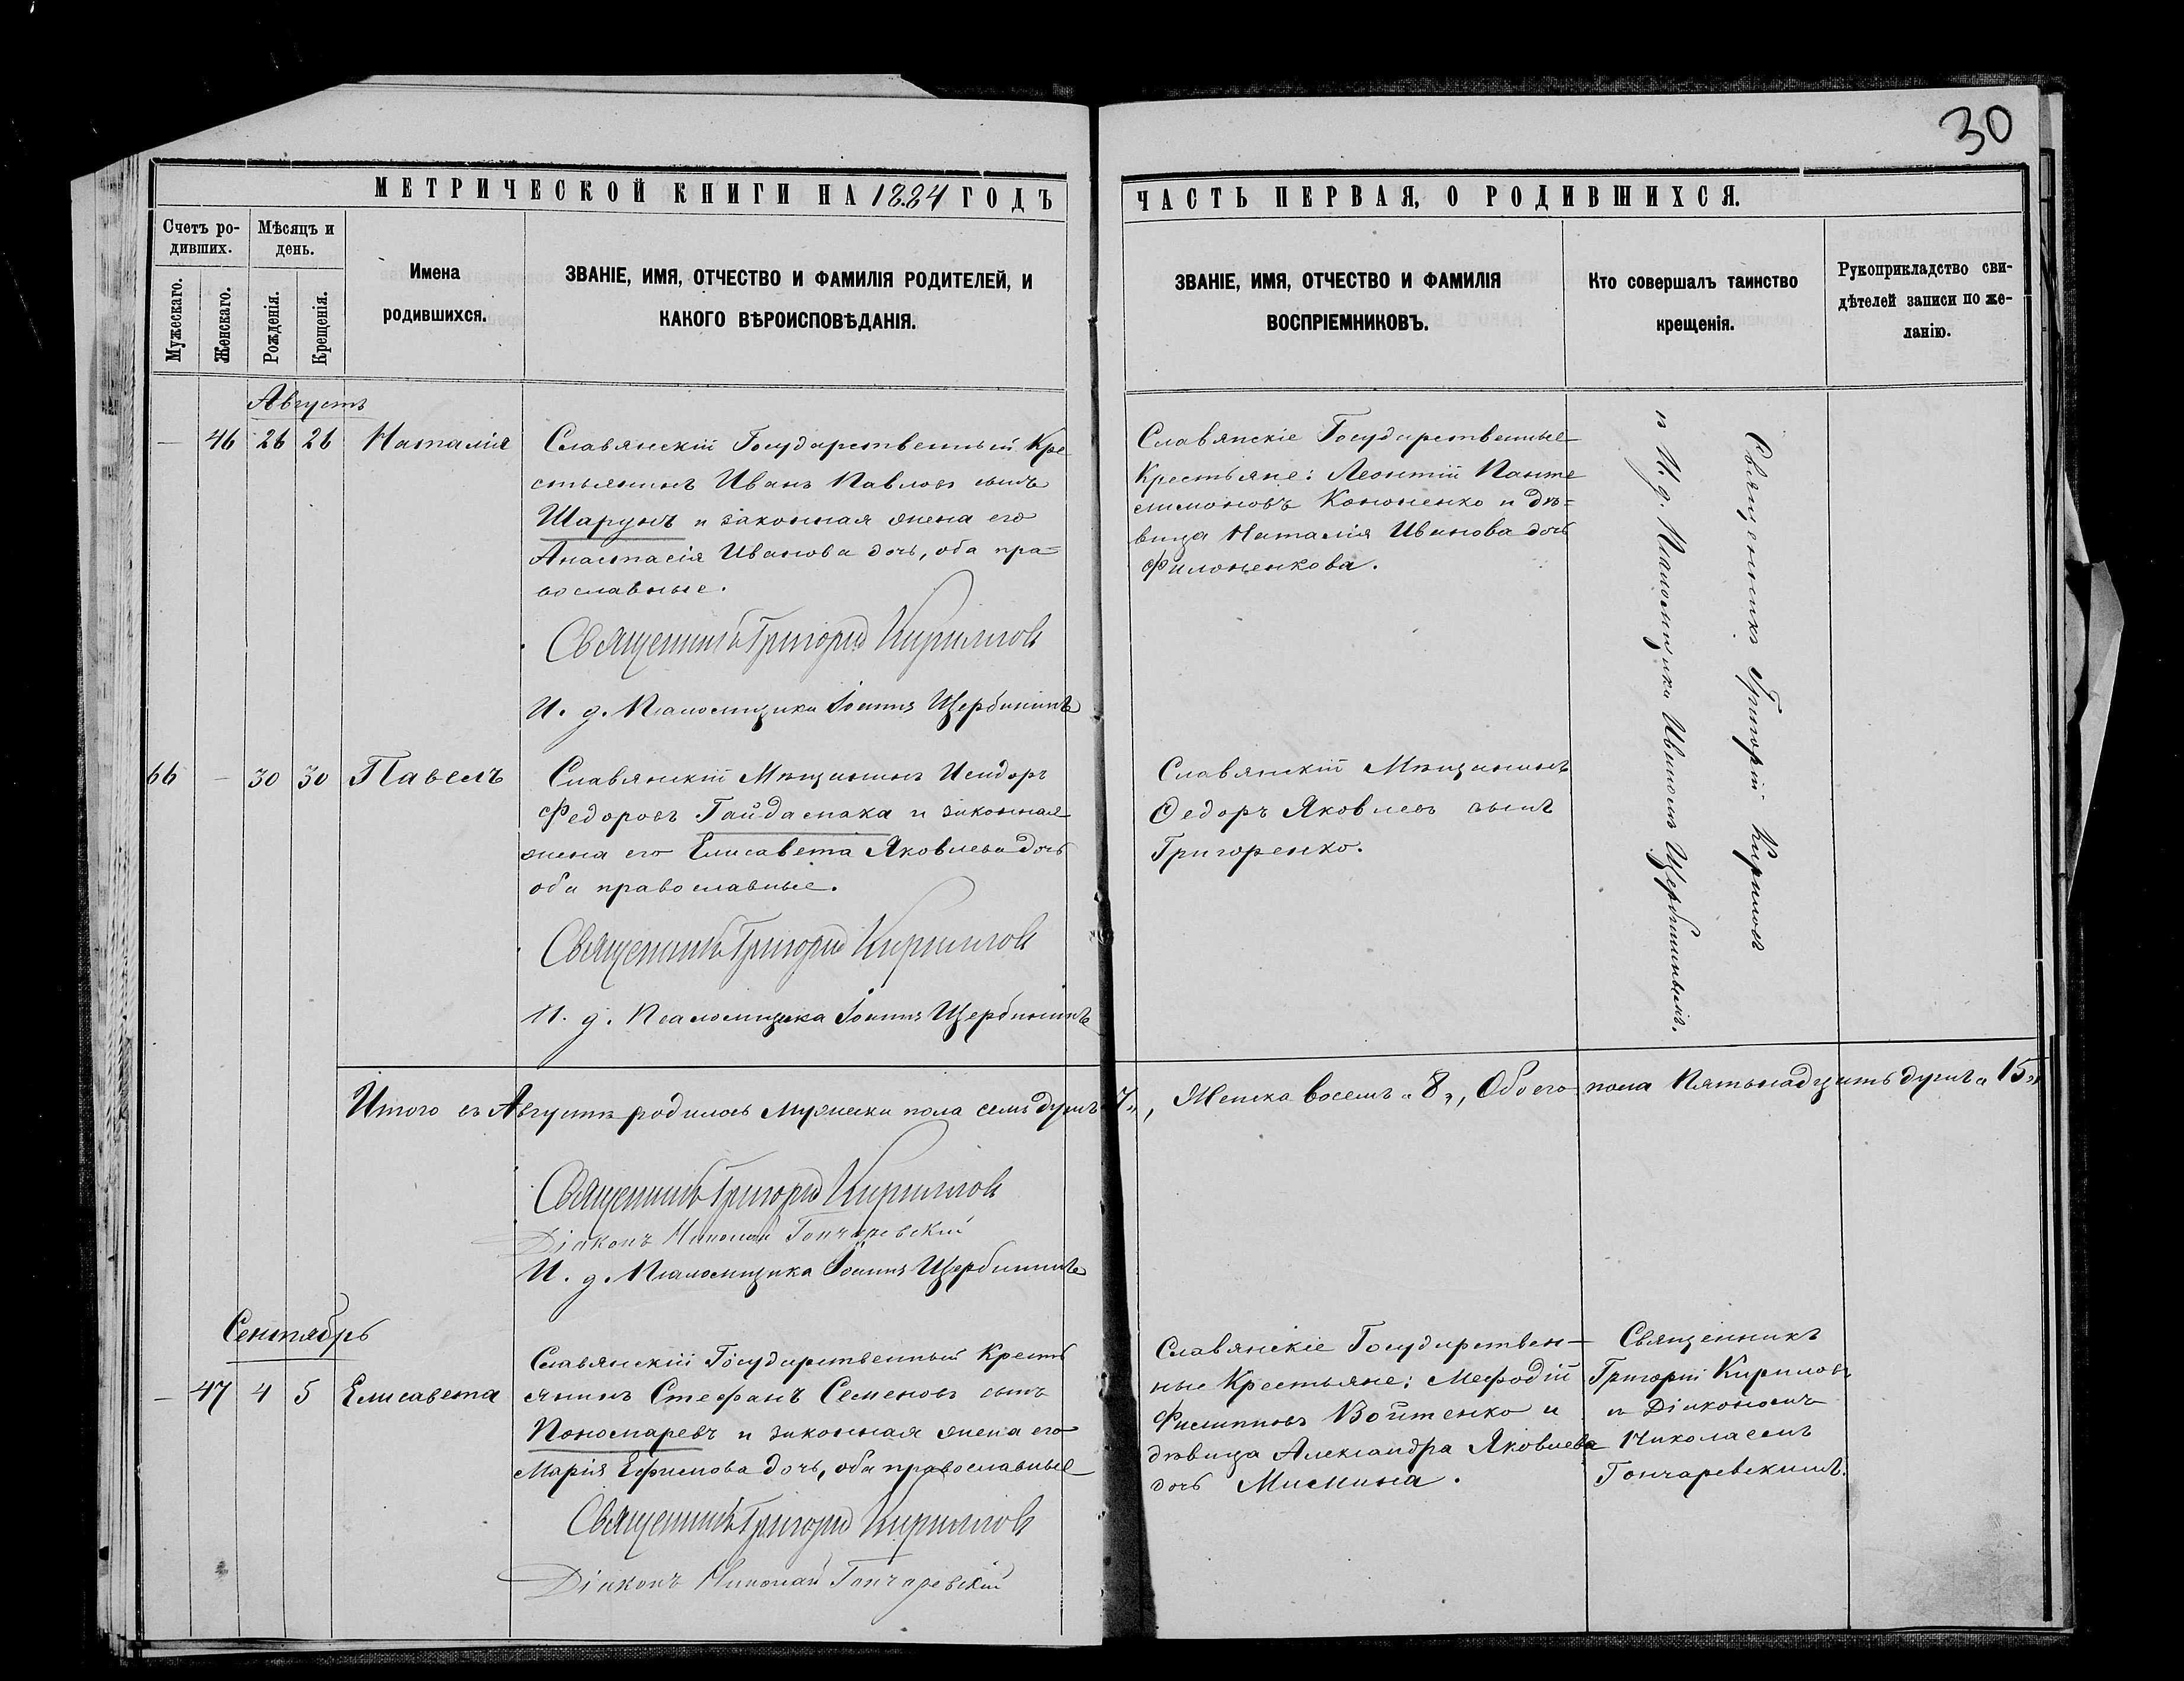 30
МЕТРИЧЕСКОЙ КНИГИ НА 1884 ГОДЪ
ЧАСТЬ ПЕРВАЯ, О РОДИВШИХСЯ.
Счетъ ро-
дивших.
Мужескаго.
Женскаго.
Мѣсяцъ и
день.
Рожденія.
Крещенія.
Имена
родившихся.
ЗВАНІЕ, ИМЯ, ОТЧЕСТВО И ФАМИЛІЯ РОДИТЕЛЕЙ, И
КАКОГО ВѢРОИСПОВѢДАНІЯ.
ЗВАНІЕ, ИМЯ, ОТЧЕСТВО И ФАМИЛІЯ
ВОСПРІЕМНИКОВЪ.
Кто совершалъ таинство
крещенія.
Рукоприкладство сви-
дѣтелей записи по же-
ланію.
Августъ
— 46 26 26 Наталія
Славянскій Государственный Кре
стьянинъ Иванъ Павловъ сынъ
Шарунъ и законная жена его
Анастасія Иванова дочь, оба пра=
вославные.
Священникъ Григорій Кириловъ
И. д. Псаломщика Іоаннъ Щербининъ
Славянскіе Государственные
Крестьяне: Леонтій Панте
лимоновъ Кононенко и дѣ=
вица Наталія Иванова дочь
Филоненкова.
Священникъ Григорій Кириловъ
съ И. д. Псаломщика Иваномъ Щербининымъ.
66 — 30 30 Павелъ
Славянскій Мѣщанинъ Исидоръ
Федоровъ Гайдамака и законная
жена его Елисавета Яковлева дочь
оба православные.
Священникъ Григорій Кириловъ
И. д. Псаломщика Іоаннъ Щербининъ
Славянскій Мѣщанинъ
Федоръ Яковлевъ сынъ
Григоренко.
Итого въ Августѣ родилось мужеска пола семь душъ 7„, Женска восемь „8„, Обоего пола Пятьнадцать душъ „15„
Священникъ Григорій Кириловъ
Діаконъ Николай Гончаревскій
И. д. Псаломщика Іоаннъ Щербининъ
Сентябрь
— 47 4 5 Елисавета
Славянскій Государственный Кресть
янинъ Стефанъ Семеновъ сынъ
Пономаревъ и законная жена его
Марія Ефимова дочь, оба православные
Священникъ Григорій Кириловъ
Діаконъ Николай Гончаревскій
Славянскіе Государствен—
ные Крестьяне: Мефодій
Филипповъ Войтенко и
дѣвица Александра Яковлева
дочь
Священникъ
Григорій Кириловъ
съ Діакономъ
Николаемъ
Гончаревскимъ.